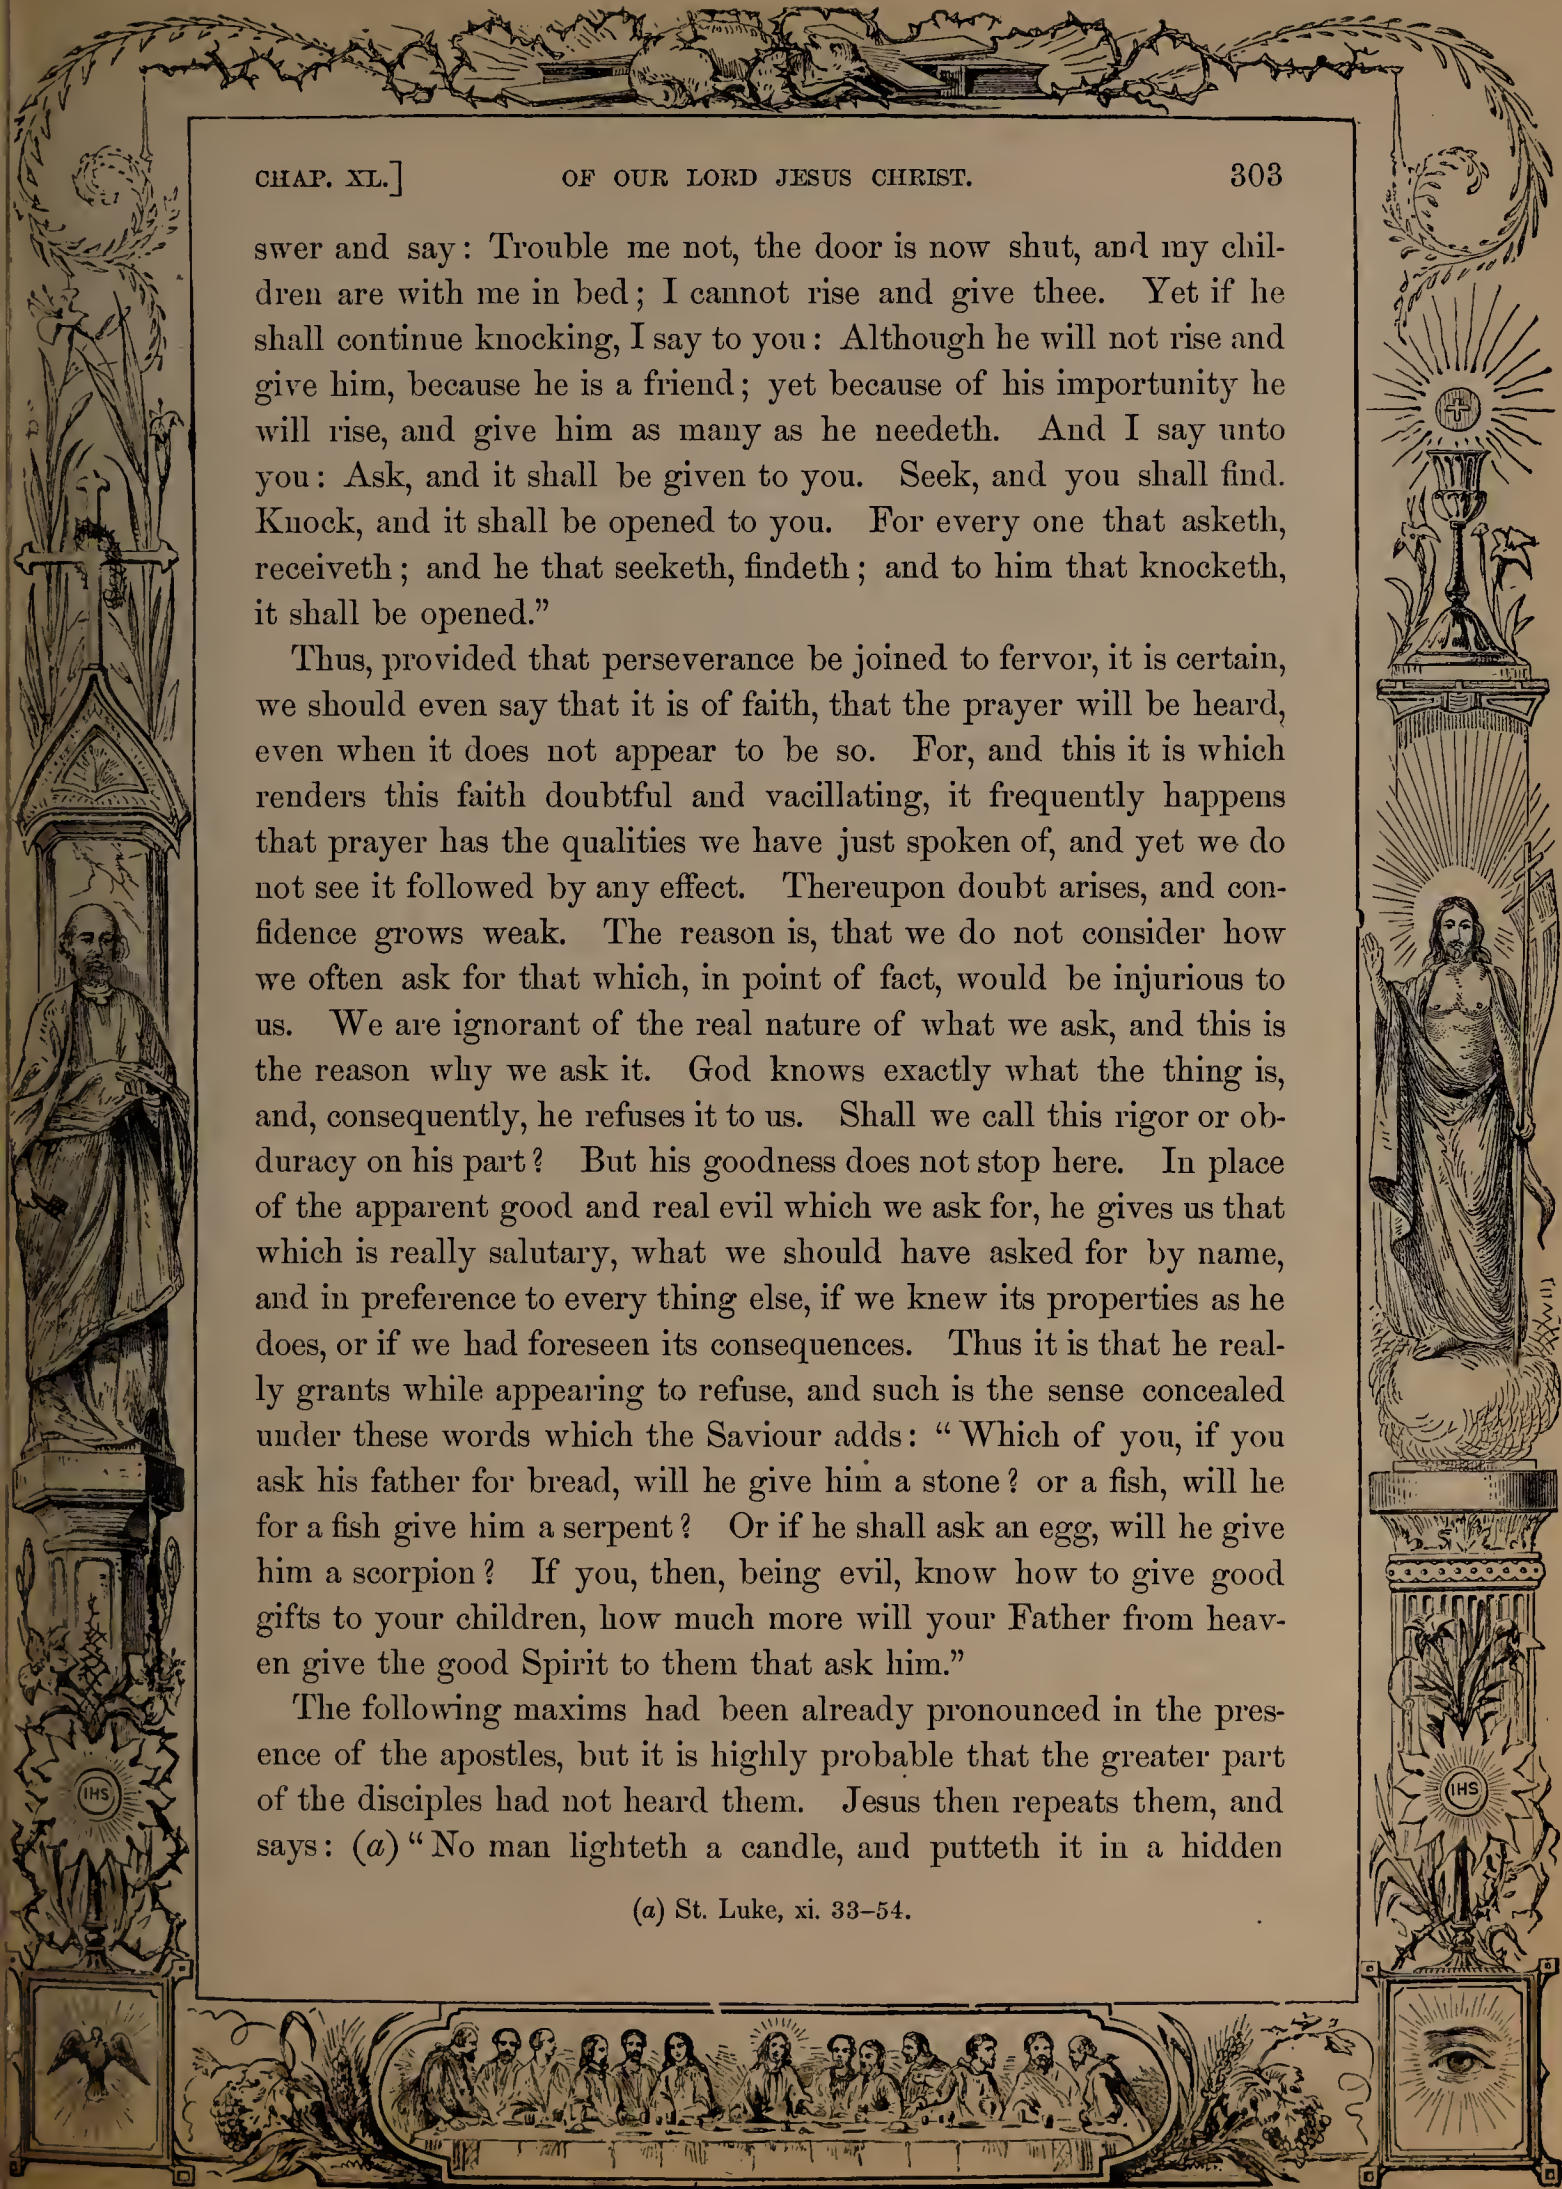 CHAP. XL.] OF OUR LORD JESUS CHRIST. 303
swer and say: Trouble me not, the door is now shut, and my chil-
dren are with me in bed; I cannot rise and give thee. Yet if he
shall continue knocking, I say to you: Although he will not rise and
give him, because he is a friend; yet because of his importunity he
will rise, and give him as many as he needeth. And I say unto
you: Ask, and it shall be given to you. Seek, and you shall find.
Knock, and it shall be opened to you. For every one that asketh,
receiveth; and he that seeketh, findeth; and to him that knocketh,
it shall be opened.”
Thus, provided that perseverance be joined to fervor, it is certain,
we should even say that it is of faith, that the prayer will be heard,
even when it does not appear to be so. For, and this it is which
renders this faith doubtful and vacillating, it frequently happens
that prayer has the qualities we have just spoken of, and yet we do
not see it followed by any effect. Thereupon doubt arises, and con-
fidence grows weak. The reason is, that we do not consider how
we often ask for that which, in point of fact, would be injurious to
us. We are ignorant of the real nature of what we ask, and this is
the reason why we ask it. God knows exactly what the thing is,
and, consequently, he refuses it to us. Shall we call this rigor or ob-
duracy on his part? But his goodness does not stop here. In place
of the apparent good and real evil which we ask for, he gives us that
which is really salutary, what we should have asked for by name,
and in preference to every thing else, if we knew its properties as he
does, or if we had foreseen its consequences. Thus it is that he real-
ly grants while appearing to refuse, and such is the sense concealed
under these words which the Saviour adds: “Which of you, if you
ask his father for bread, will he give him a stone? or a fish, will he
for a fish give him a serpent? Or if he shall ask an egg, will he give
him a scorpion? If you, then, being evil, know how to give good
gifts to your children, how much more will your Father from heav-
en give the good Spirit to them that ask him.”
The following maxims had been already pronounced in the pres-
ence of the apostles, but it is highly probable that the greater part
of the disciples had not heard them. Jesus then repeats them, and
says: (a) “No man lighteth a candle, and putteth it in a hidden
(a) St. Luke, xi. 33–54.
IHS
IHS